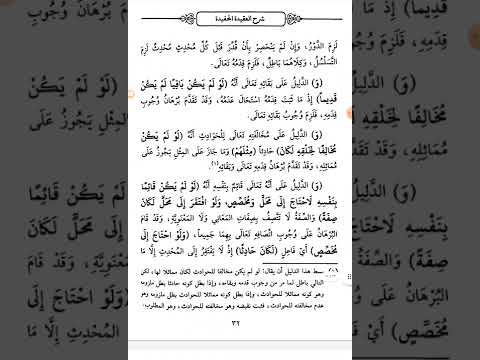 شرح العقيدة الحفيدة
لَزِمَ الدَّوْرُ، وَإِنْ لَمْ يَنْحَصِرْ بِأَنْ قُدِّرَ قَبْلَ كُلِّ مُحْدِثٍ مُحْدِثٌ لَزِمَ
التَّسَلْسُلُ، وَكِلَاهُمَا بَاطِلٌ، فَلَزِمَ قِدَمُهُ تَعَالَى.
(وَ) الدَّلِيلُ عَلَى بَقَائِهِ تَعَالَى أَنَّهُ (لَوْ لَمْ يَكُنْ بَاقِيًا لَمْ يَكُنْ
قَدِيمًا) إِذْ مَا ثَبَتَ قِدَمُهُ اسْتَحَالَ عَدَمُهُ، وَقَدْ تَقَدَّمَ بُرْهَانُ وُجُوبِ
قِدَمِهِ، فَلَزِمَ وُجُوبُ بَقَائِهِ تَعَالَى.
(وَ) الدَّلِيلُ عَلَى مُخَالَفَتِهِ تَعَالَى لِلْحَوَادِثِ أَنَّهُ (لَوْ لَمْ يَكُنْ
مُخَالِفًا لِخَلْقِهِ لَكَانَ) حَادِثًا (مِثْلَهُمْ) وَمَا جَازَ عَلَى المِثْلِ يَجُوزُ عَلَى
مُمَاثِلِهِ، وَقَدْ تَقَدَّمَ بُرْهَانُ قِدَمِهِ تَعَالَى وَبَقَائِهِ(١).
(وَ) الدَّلِيلُ عَلَى أَنَّهُ تَعَالَى قَائِمٌ بِنَفْسِهِ أَنَّهُ (لَوْ لَمْ يَكُنْ قَائِمًا
بِنَفْسِهِ لَاحْتَاجَ إِلَى مَحَلٍّ وَمُخَصِّصٍ، وَلَوِ افْتَقَرَ إِلَى مَحَلٍّ لَكَانَ
صِفَةً) وَالصِّفَةُ لَا تَتَّصِفُ بِصِفَاتِ المَعَانِي وَلَا المَعْنَوِيَّةِ، وَقَدْ قَامَ
البُرْهَانُ عَلَى وُجُوبِ اتِّصَافِهِ تَعَالَى بِهِمَا جَمِيعًا، (وَلَوِ احْتَاجَ إِلَى
مُخَصِّصٍ) أَيْ فَاعِلٍ (لَكَانَ حَادِثًا) إِذْ لَا يَفْتَقِرُ إِلَى المُحْدِثِ إِلَّا مَا
بسط هذا الدليل أن يقال: لو لم يكن مخالفا للحوادث لكان مماثلا لها، لكن
التالي باطل لما مر من وجوب قدمه وبقاءه، وإذا بطل كونه حادثا بطل ملزومه
وهو كونه مماثلا للحوادث، وإذا بطل كونه مماثلا للحوادث بطل ملزومه وهو
عدم مخالفته للحوادث، فثبت نقيضه وهو مخالفته للحوادث، وهو المطلوب.
٣٢